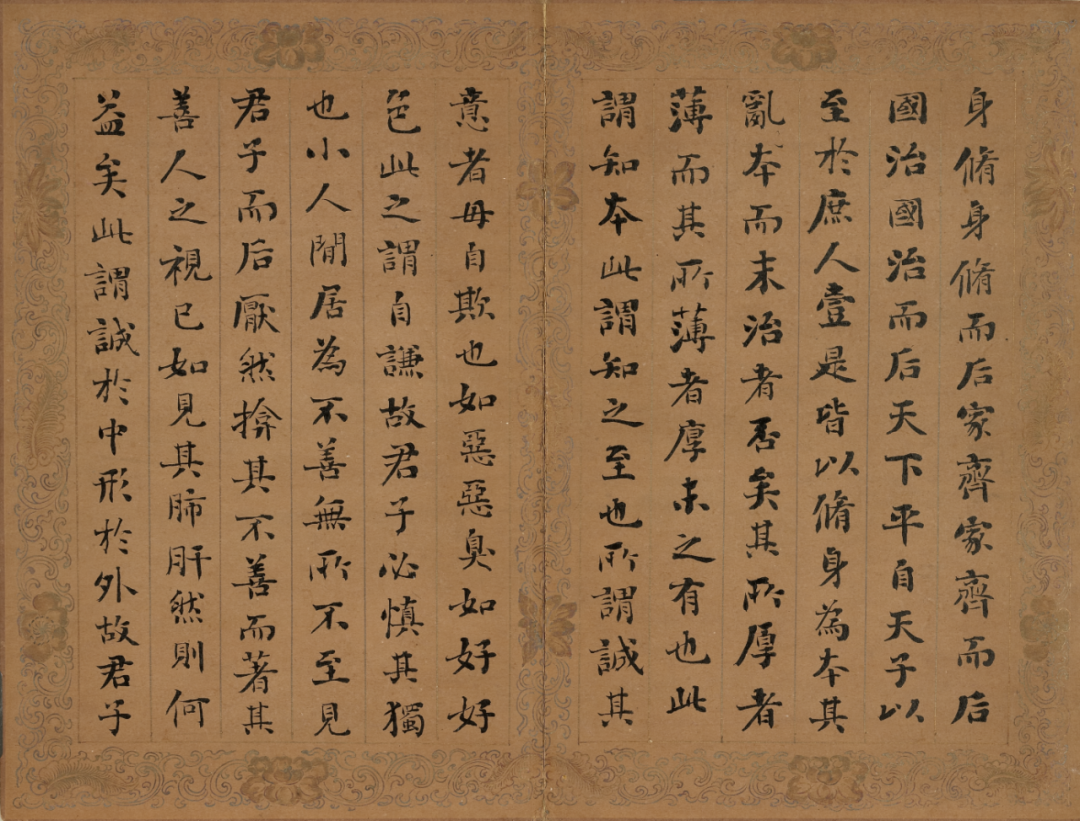 身脩身脩而后家齊家齊而后
國治國治而后天下平自天子以
至於庶人壹是皆以脩身為本其
亂本而末治者否矣其所厚者
薄而其所薄者厚未之有也此
謂知本此謂知之至也所謂誠其
意者毋自欺也如惡惡臭如好好
色此之謂自謙故君子必慎其獨
也小人閒居為不善無所不至見
君子而后厭然揜其不善而著其
善人之視已如見其肺肝然則何
益矣此謂誠於中形於外故君子